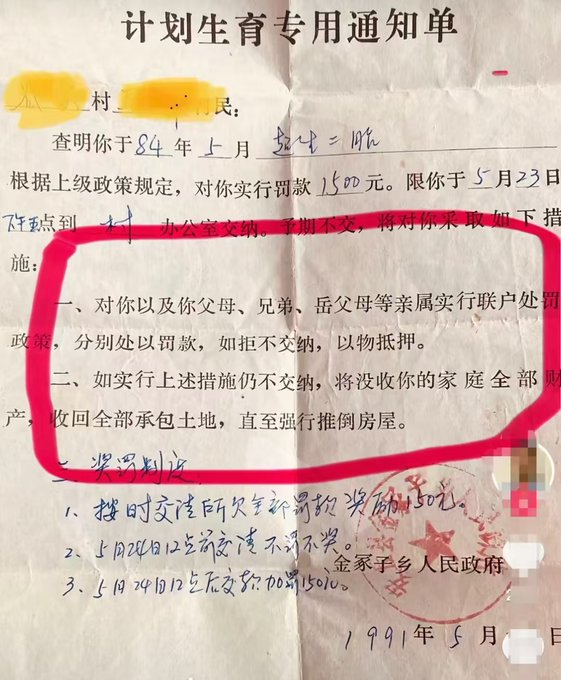 计划生育专用通知单
村 民：
查明你于84年5月超生二胎
根据上级政策规定，对你实行罚款1500元。限你于5月23日
下午5点到 村 办公室交纳。予期不交，将对你采取如下措
施：
一、对你以及你父母、兄弟、岳父母等亲属实行联户处罚
政策，分别处以罚款，如拒不交纳，以物抵押。
二、如实行上述措施仍不交纳，将没收你的家庭全部财
产，收回全部承包土地，直至强行推倒房屋。
三、奖罚制度
1、按时交清所欠全部罚款奖励150元。
2、5月24日12点前交清不罚不奖。
3、5月24日12点后交款加罚150元。
金冢子乡人民政府
1991年5月 日